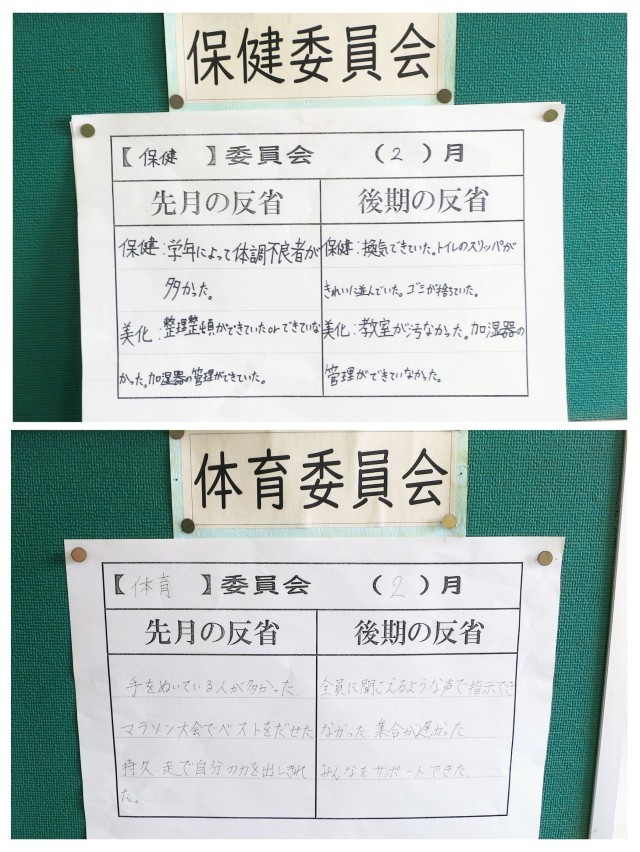 保健委員会
【 保健 】委員会 ( 2 )月
先月の反省
後期の反省
保健:学年によって体調不良者が
多かった。
美化:整理整頓ができていたorできていな
かった。加湿器の管理ができていた。
保健:換気できていた。トイレのスリッパが
きれいに並んでいた。ゴミが捨ていた。
美化:教室が汚なかった。加湿器の
管理ができていなかった。
体育委員会
【 体育 】委員会 ( 2 )月
先月の反省
後期の反省
手をぬいている人が多かった。
マラソン大会でベストをだせた
持久走で自分の力を出しきれ
た。
全員に聞こえるような声で指示でき
なかった。集合が遅かった。
みんなをサポートできた。